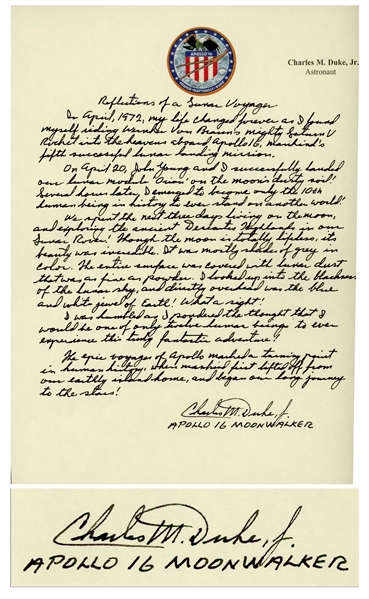 APOLLO 16
Charles M. Duke, Jr.
Astronaut
Reflections of a Lunar Voyager
In April, 1972, my life changed forever as I found
myself riding Wernher Von Braun's mighty Saturn V
Rocket into the heavens aboard Apollo 16, mankind's
fifth successful lunar landing mission.
On April 20, John Young and I successfully landed
our lunar module "Orion" on the moon's dusty soil!
Several hours later, I emerged to become only the 10th
human being in history to ever stand on another world!
We spent the next three days living on the moon,
and exploring the ancient Descartes Highlands in our
Lunar Rover! Though the moon is totally lifeless, its
beauty was incredible. It was mostly shades of grey in
color. The entire surface was covered with lunar dust
that was as fine as powder. I looked up into the blackness
of the lunar sky, and directly overhead was the blue
and white jewel of Earth! What a sight!
I was humbled as I pondered the thought that I
would be one of only twelve human beings to ever
experience this truly fantastic adventure!
The epic voyages of Apollo marked a turning point
in human history, when mankind first lifted off from
our earthly island home, and began our long journey
to the stars!
Charles M. Duke, Jr.
APOLLO 16 MOONWALKER
Charles M. Duke, Jr.
APOLLO 16 MOONWALKER